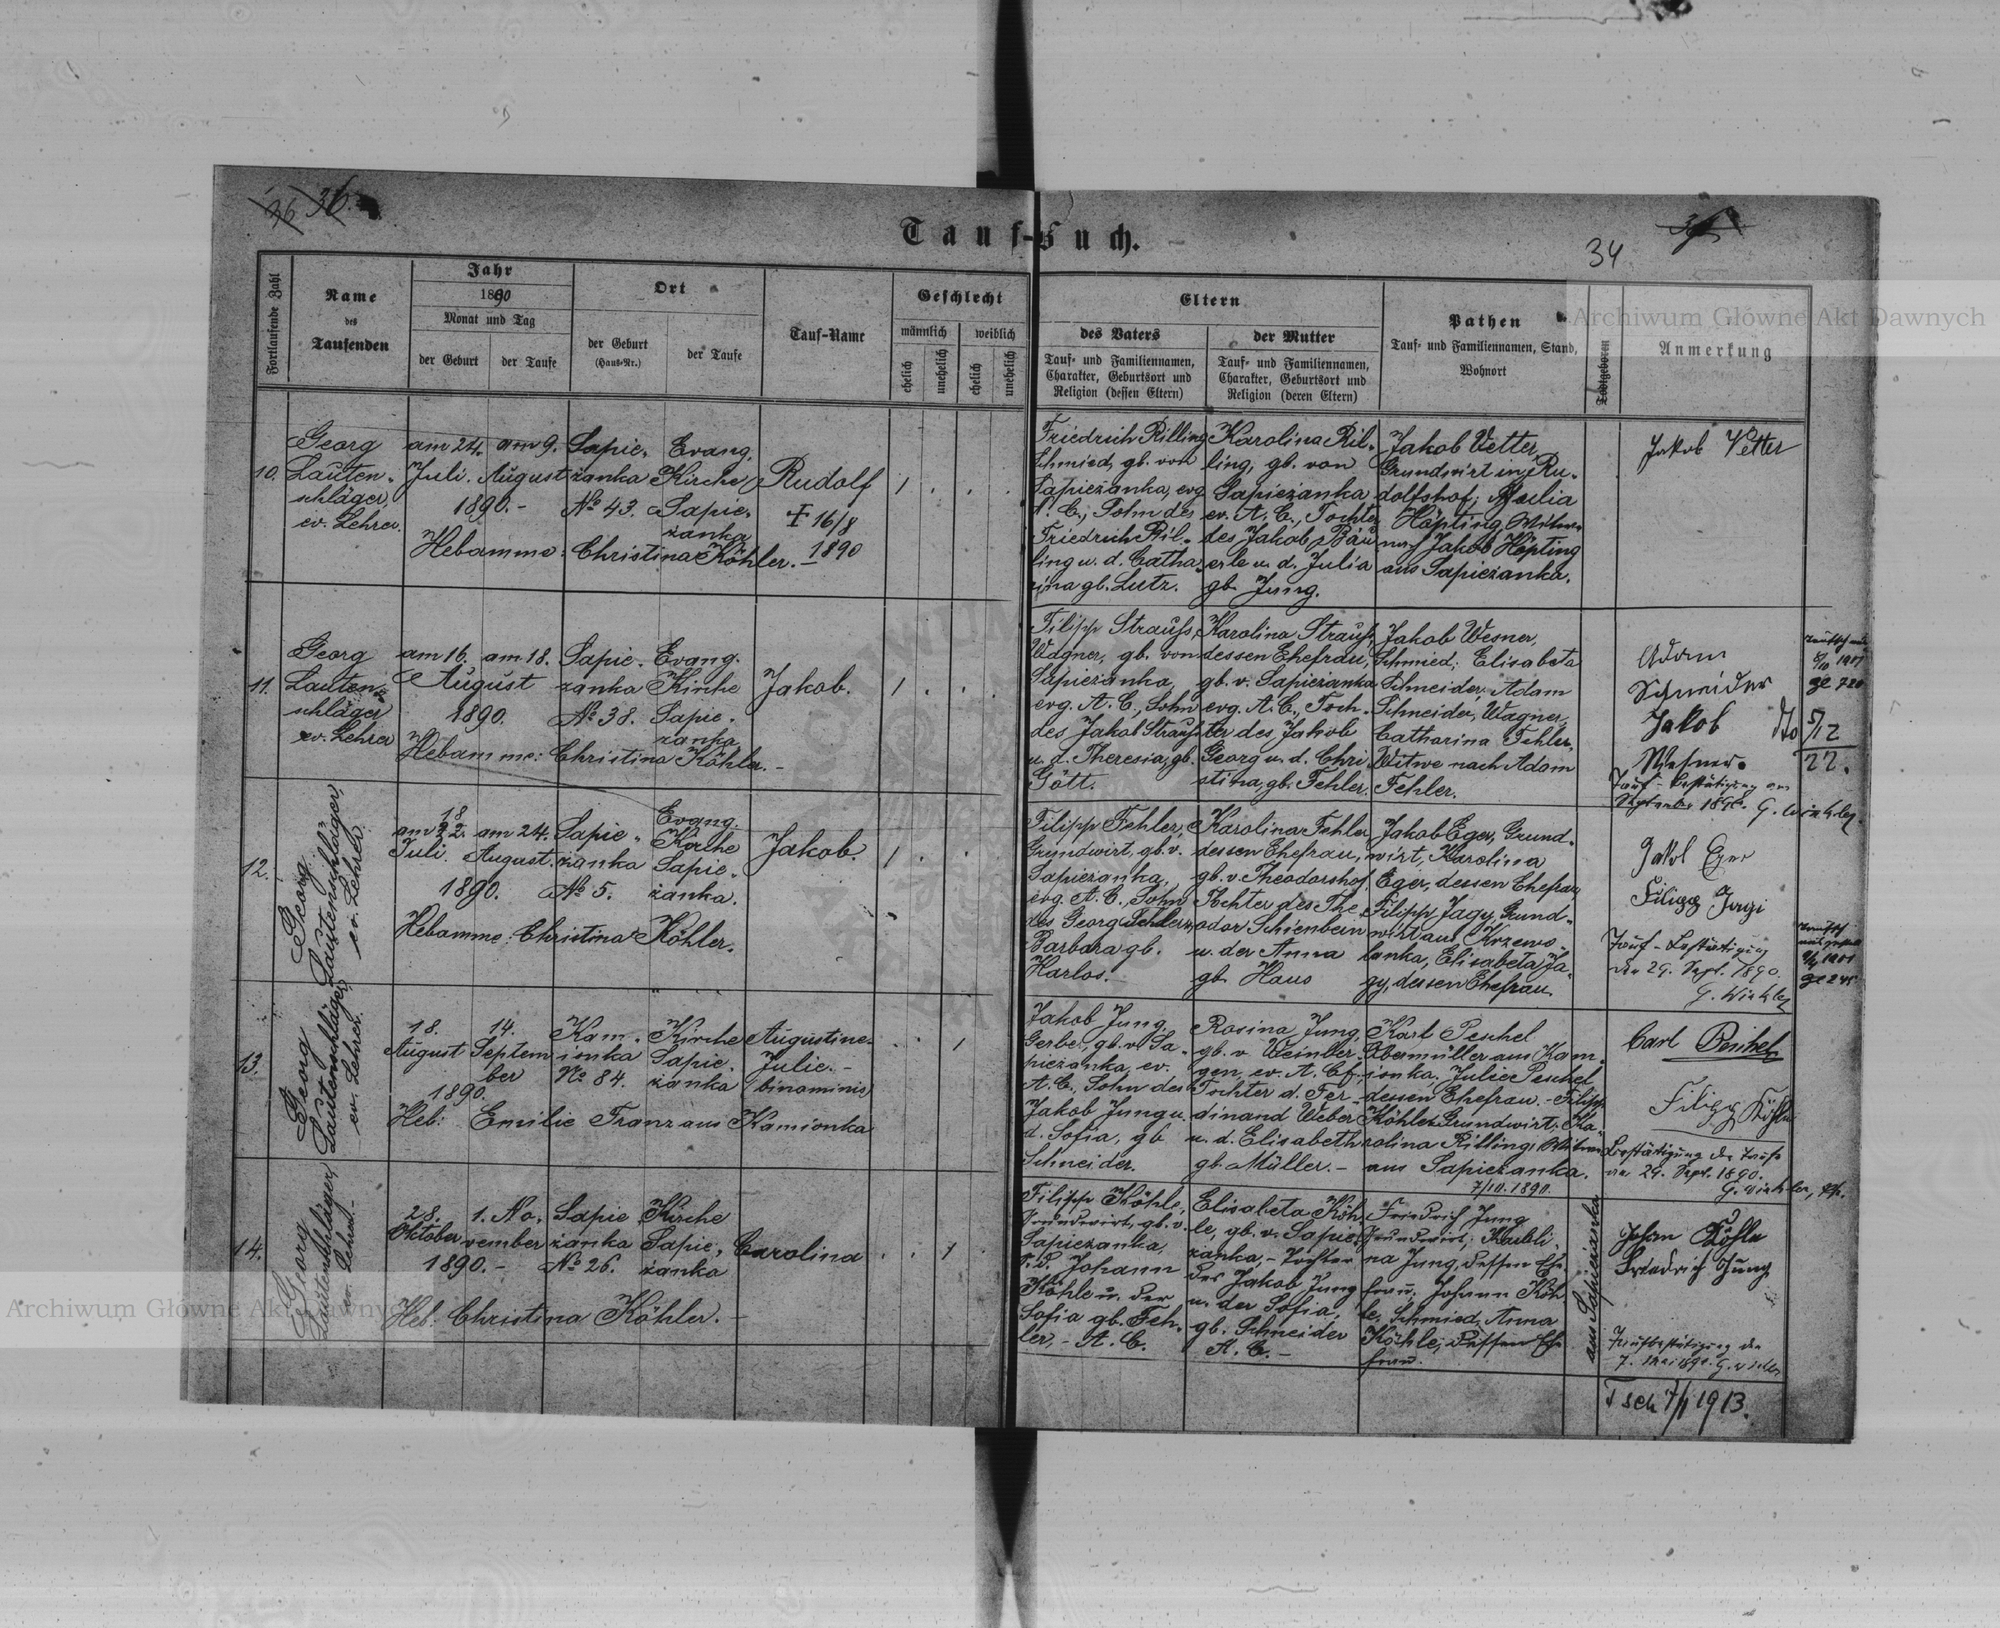 36 36.
Tauf-Buch.
34
Fortlaufende Zahl
Name
des
Taufenden
Jahr
1890
Monat und Tag
der Geburt
der Taufe
Ort
der Geburt
(Haus-Nr.)
der Taufe
Tauf-Name
Geschlecht
männlich
weiblich
ehelich
unehelich
ehelich
unehelich
Eltern
des Vaters
Tauf- und Familiennamen,
Charakter, Geburtsort und
Religion (dessen Eltern)
der Mutter
Tauf- und Familiennamen,
Charakter, Geburtsort und
Religion (deren Eltern)
Pathen
Tauf- und Familiennamen, Stand,
Wohnort
Todtgeboren
Anmerkung
Archiwum Główne Akt Dawnych
10.
Georg
Lauten-
schläger,
ev. Lehrer.
am 24.
Juli.
am 9.
August
1890.-
Sapie-
żanka
No 43.
Evang.
Kirche
Sapie-
żanka
Hebamme: Christina Köhler.-
Rudolf
† 16/8
1890
1
Friedrich Rilling
Schmied, gb. von
Sapieżanka, evg
A. C., Sohn des
Friedrich Ril-
ling u. d. Catha-
rina gb. Lutz.
Karolina Ril-
ling, gb. von
Sapieżanka
ev. A. C., Tochter
des Jakob Bäu
erle u. d. Julia
gb. Jung.
Jakob Vetter,
Grundwirt in Ru-
dolfshof; Julia
Höpting, Witwe
nach Jakob Höpting
aus Sapieżanka.
Jakob Vetter
11.
Georg
Lauten-
schläger
ev. Lehrer
am 16. am 18.
August
1890.
Sapie-
żanka
No 38.
Evang.
Kirche
Sapie-
żanka
Hebamme: Christina Köhler.-
Jakob.
1
Filipp Strauß,
Wagner, gb. von
Sapieżanka,
evg. A. C., Sohn
des Jakob Strauß
u. d. Theresia, gb.
Gött.
Karolina Strauß,
dessen Ehefrau,
gb. v. Sapieżanka
evg. A. C., Toch-
ter des Jakob
Georg u. d. Chri
stina, gb. Fehler.
Jakob Wesner,
Schmied; Elisabeta
Schneider, Adam
Schneider, Wagner,
Catharina Fehler,
Witwe nach Adam
Fehler.
Adam
Schneider
Jakob
Wesner.
Tauf-Bestätigung am
September 1890. G. Winkler.
5/12
22.
12.
Georg
Lautenschläger,
ev. Lehrer.
18
am 22.
Juli.
am 24.
August.
1890.
Sapie-
żanka
No 5.
Evang.
Kirche
Sapie-
żanka.
Hebamme: Christina Köhler.
Jakob.
1
Filipp Fehler,
Grundwirt, gb. v.
Sapieżanka,
evg. A. C., Sohn
des Georg Fehler u
Barbara gb.
Harlos.
Karolina Fehler
dessen Ehefrau,
gb. v. Theodorshof,
Tochter des The-
odor Schienbein
u. der Anna
gb. Haus
Jakob Eger, Grund-
wirt, Karolina
Eger, dessen Ehefrau,
Filipp Jagy, Grund-
wirt aus Krzewo-
lanka, Elisabeta Ja-
gy, dessen Ehefrau
Jakob Eger
Filipp Jagi
Tauf-Bestätigung
den 29. Sept. 1890.
G. Winkler
13.
Georg
Lautenschläger,
ev. Lehrer.
18.
August
14.
Septem
ber
1890.
Kam-
ionka
No 84.
Kirche
Sapie-
żanka
Heb: Emilie Franz aus Kamionka
Augustine-
Julie.-
(binominis)
1
Jakob Jung,
Gerber, gb. v. Sa-
pieżanka, ev.
A. C., Sohn des
Jakob Jung u.
d. Sofia, gb.
Schneider.
Rosina Jung,
gb. v. Weinber-
gen, ev. A. C.,
Tochter d. Fer-
dinand Weber
u. d. Elisabeth
gb. Müller.-
Karl Peschel
Obermüller aus Kam-
ionka, Julie Peschel
dessen Ehefrau.- Filipp
Köhler, Grundwirt; Ka-
rolina Rilling, Witwe
aus Sapieżanka.
7/10. 1890.
Carl Peschel
Filipp Köhle
Bestätigung der Taufe
den 29. Sept. 1890.
G. Winkler,
14.
Georg
Lautenschläger,
ev. Lehrer.-
28.
Oktober
1. No-
vember
1890.-
Sapie
żanka
No 26.
Kirche
Sapie-
żanka
Heb: Christina Köhler.-
Carolina
1
Filipp Köhle,
Grundwirt, gb. v.
Sapieżanka,
S. d. Johann
Köhle u. der
Sofia gb. Feh-
ler,- A. C.
Elisabeta Köh-
le, gb. v. Sapie-
żanka,- Tochter
des Jakob Jung
u. der Sofia,
gb. Schneider
A. C.-
Friedrich Jung
Grundwirt, Karoli-
na Jung, dessen Ehe
frau; Johann Köh
le, Schmied, Anna
Köhle, dessen Ehe
frau.
aus Sapieżanka
Johan Köhle
Friedrich Jung
Taufbestätigung den
G. Winkler
Tsch 7/1 1913.
Archiwum Główne Akt Dawnych